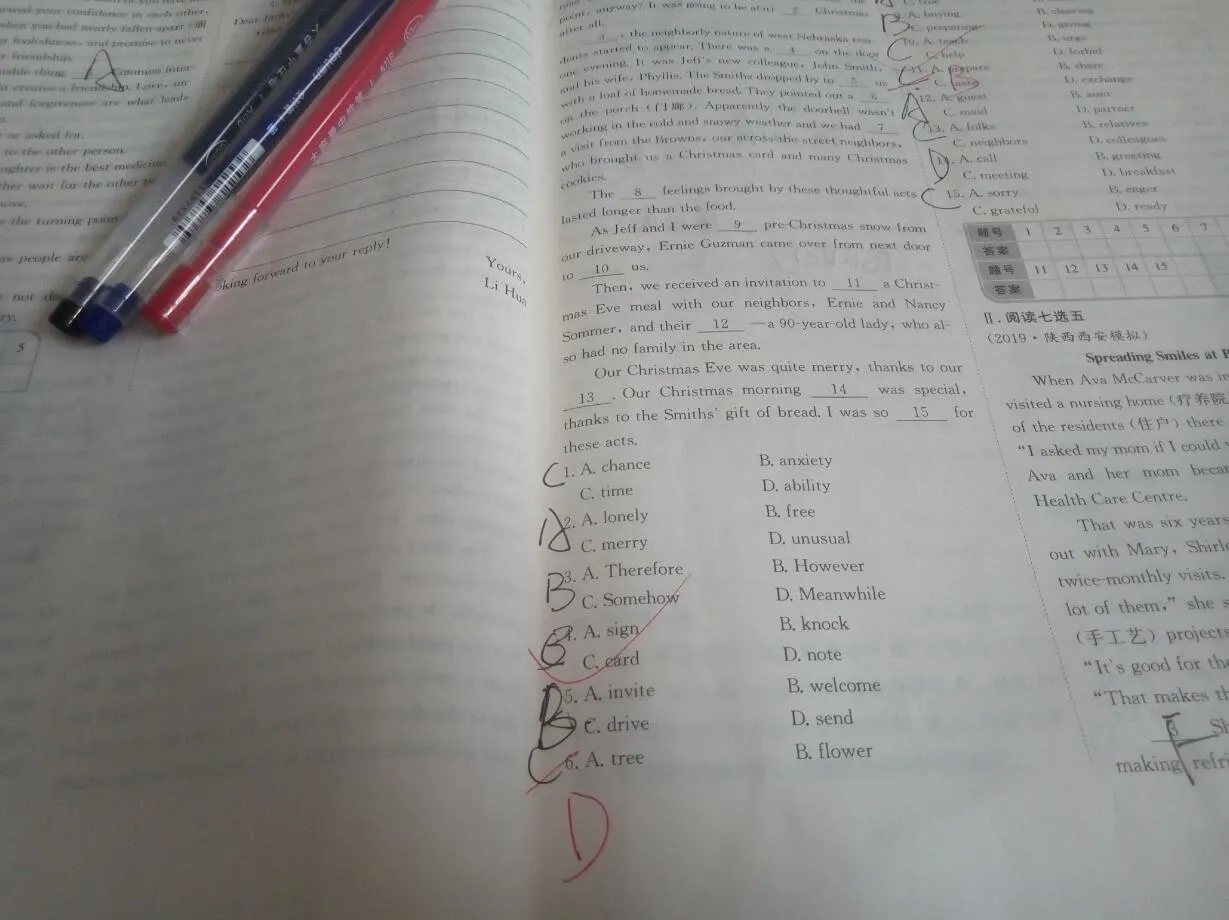 ewed your confidence in each other.
when you had nearly fallen apart
foolishness, and promise to never
friendship.
able thing
A
common inter-
t creates a friendship. Love, un-
and forgiveness are what leads
or asked for.
to the other person.
ughter is the best medicine.
her wait for the other
s the turning point
ss people are
not
ry.
5
Dear Jack,
oking forward to your reply!
Yours,
Li Hua
point, anyway? It was going to be a(n) 2 Christmas
after all.
3 , the neighborly nature of west Nebraska resi-
dents started to appear. There was a 4 on the door
one evening. It was Jeff's new colleague, John Smith,
and his wife, Phyllis. The Smiths dropped by to 5 us
with a loaf of homemade bread. They pointed out a 6
on the porch (门廊). Apparently the doorbell wasn't
working in the cold and snowy weather and we had 7
a visit from the Browns, our across-the-street neighbors,
who brought us a Christmas card and many Christmas
cookies.
The 8 feelings brought by these thoughtful acts
lasted longer than the food.
As Jeff and I were 9 pre-Christmas snow from
our driveway, Ernie Guzman came over from next door
to 10 us.
Then, we received an invitation to 11 a Christ-
mas Eve meal with our neighbors, Ernie and Nancy
Sommer, and their 12 —a 90-year-old lady, who al-
so had no family in the area.
Our Christmas Eve was quite merry, thanks to our
13 . Our Christmas morning 14 was special,
thanks to the Smiths' gift of bread. I was so 15 for
these acts.
C 1. A. chance B. anxiety
C. time D. ability
A 2. A. lonely B. free
C. merry D. unusual
B 3. A. Therefore B. However
C. Somehow D. Meanwhile
B 4. A. sign B. knock
C. card D. note
B 5. A. invite B. welcome
C. drive D. send
C 6. A. tree B. flower
D
C. true
B 9. A. buying B. clearing
C. preparing D. giving
C 10. A. teach B. urge
C. help D. forbid
C 11. A. prepare B. share
B C. taste D. exchange
A 12. A. guest B. aunt
C. maid D. partner
C 13. A. folks B. relatives
C. neighbors D. colleagues
D 14. A. call B. greeting
C. meeting D. breakfast
C 15. A. sorry B. eager
C. grateful D. ready
题号 1 2 3 4 5 6 7
答案
题号 11 12 13 14 15
答案
Ⅱ.阅读七选五
(2019·陕西西安模拟)
Spreading Smiles at
When Ava McCarver was
visited a nursing home (疗养院
of the residents (住户) there
“I asked my mom if I could
Ava and her mom
Health Care Centre.
That was six years
out with Mary,
twice-monthly visits.
lot of them,” she
(手工艺) projects
“It's good for
“That makes
making